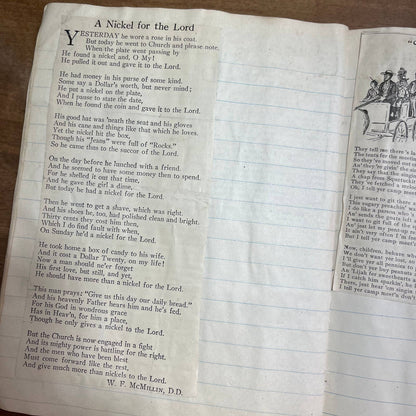 A Nickel for the Lord
YESTERDAY he wore a rose in his coat
But today he went to Church and please note,
When the plate went passing by
He found a nickel and, O My!
He pulled it out and gave it to the Lord.
He had money in his purse of some kind.
Some say a Dollar's worth, but never mind;
He put a nickel on the plate,
And I pause to state the date,
When he found the coin and gave it to the Lord.
His good hat was 'neath the seat and his gloves
And his cane and things like that which he loves.
Yet the nickel hit the box,
Though his "Jeans" were full of "Rocks."
So he came thus to the succor of the Lord.
On the day before he lunched with a friend.
And he seemed to have some money then to spend.
For he shelled it out that time,
And he gave the girl a dime,
But today he had a nickel for the Lord.
Then he went to get a shave, which was right.
And his shoes he, too, had polished clean and bright.
Thirty cents they cost him then,
Which I do find fault with when,
On Sunday he'd a nickel for the Lord.
He took home a box of candy to his wife.
And it cost a Dollar Twenty, on my life!
Now a man should ne'er forget
His first love, but still, and yet,
He should have more than a nickel for the Lord.
This man prays: "Give us this day our daily bread."
And his heavenly Father hears him and he's fed.
For his God in wondrous grace
Has in Heav'n, for him a place,
Though he only gives a nickel to the Lord.
But the Church is now engaged in a fight
And its mighty power is battling for the right.
And the men who have been blest
Must come forward like the rest,
And give much more than nickels to the Lord.
W. F. MCMILLIN, D.D.
They tell me there's
The tents for the
So they've moved
An' they're givin'
They say that the
A chap from
They've fetched a
Oh, I tell yer camp
I just want to git there
This sugary pizen
I do like a person who
An' sends the
I want to git full of the
An' jist let my poor
It ain't very often I'm
But I tell yer camp
Now, children, behave
We don't want yer
I'll give yer all pennies
But don't yer buy peanuts
An' 'Lijah fer
It raised him sparkin', he
There, jist hear 'em
I tell yer camp meet'n